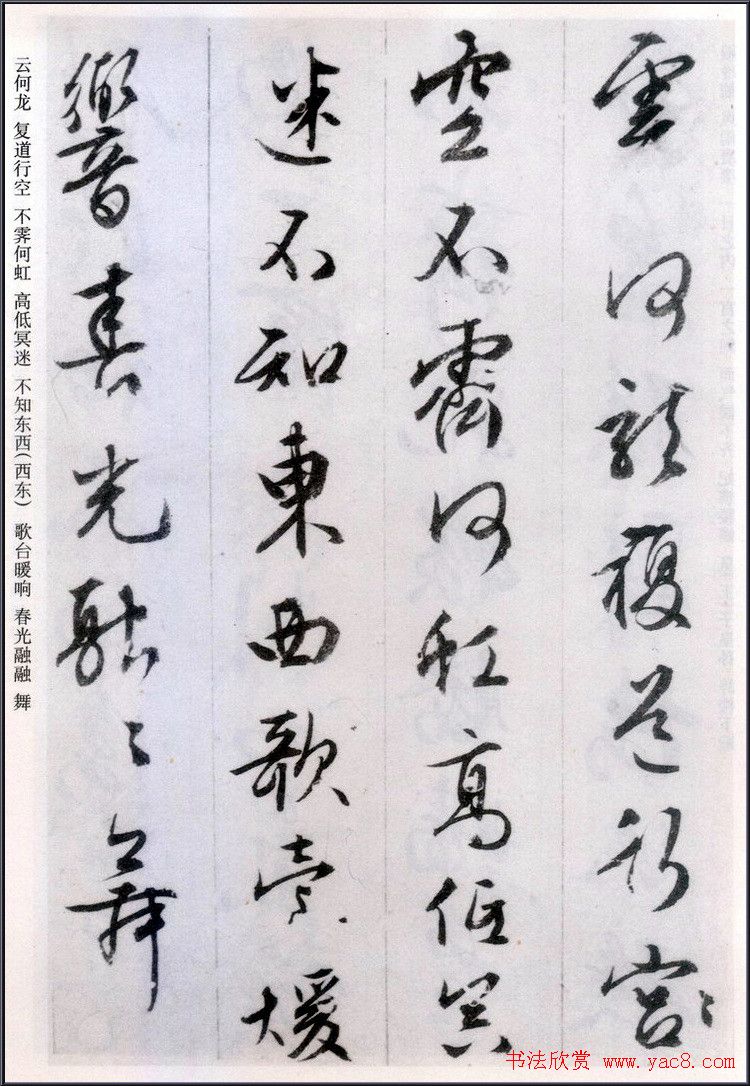 雲何龍複道行宮
空不霽何虹高低冥
迷不知東西歌臺煖
響春光融〻舞
云何龙 复道行空 不霁何虹 高低冥迷 不知东西(西东) 歌台暖响 春光融融 舞
书法欣赏 www.yac8.com